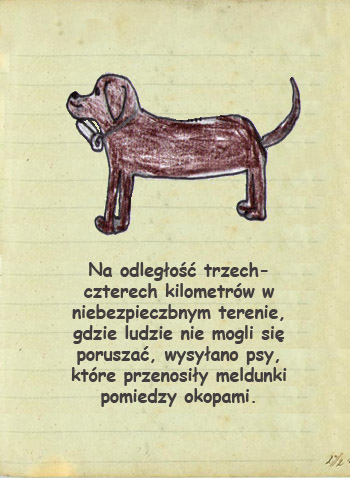 Na odległość trzech-
czterech kilometrów w
niebezpieczbnym terenie,
gdzie ludzie nie mogli się
poruszać, wysyłano psy,
które przenosiły meldunki
pomiedzy okopami.